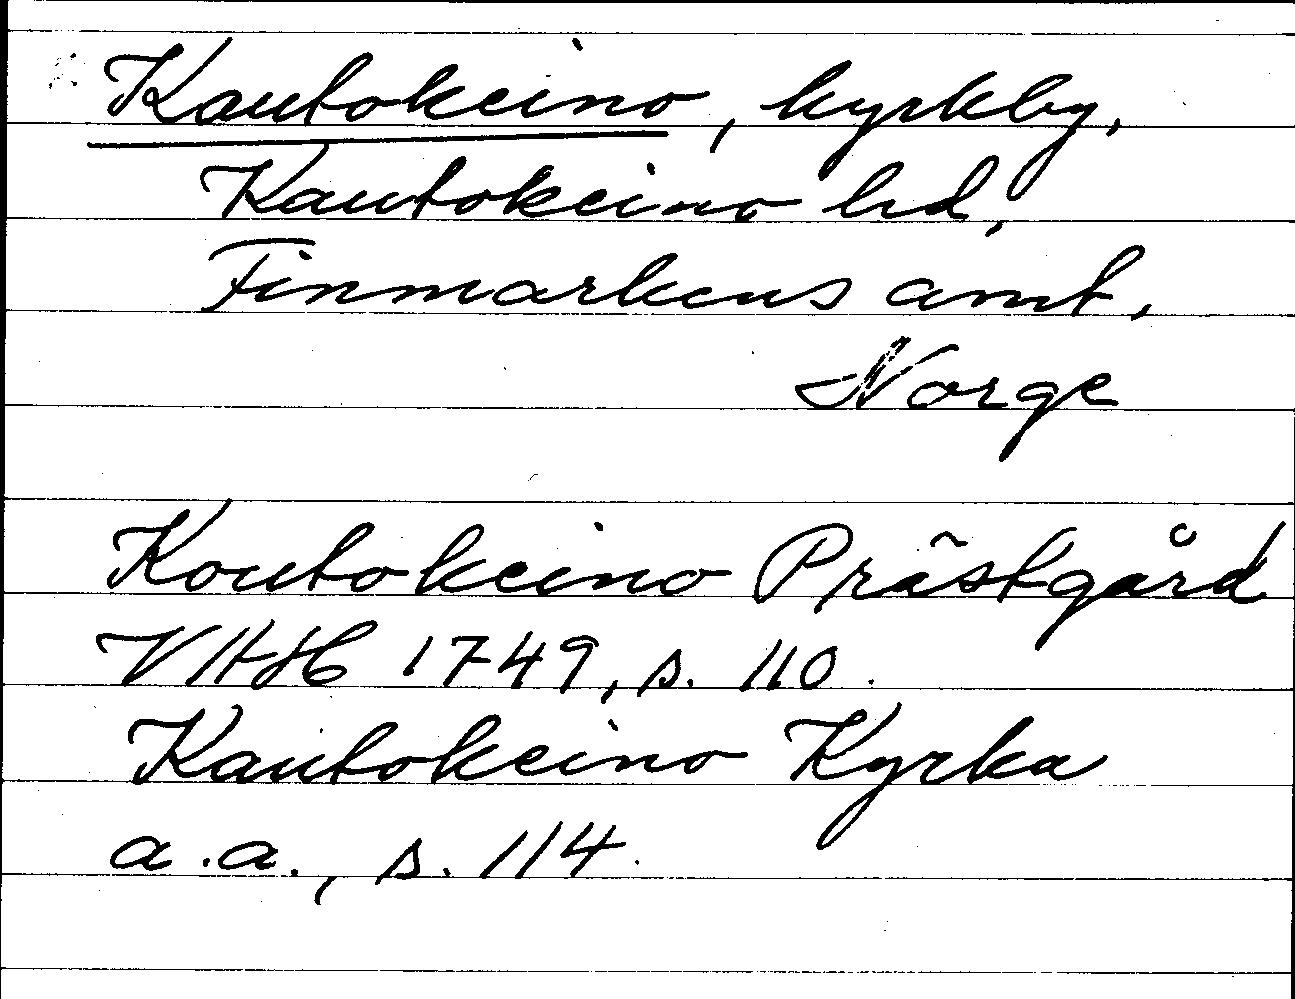 Kautokeino, kyrkby,
Kautokeino hd,
Finmarkens amt,
Norge
Koutokeino Prästgård
VHH 1749, s. 110.
Kautokeino Kyrka
a.a., s. 114.